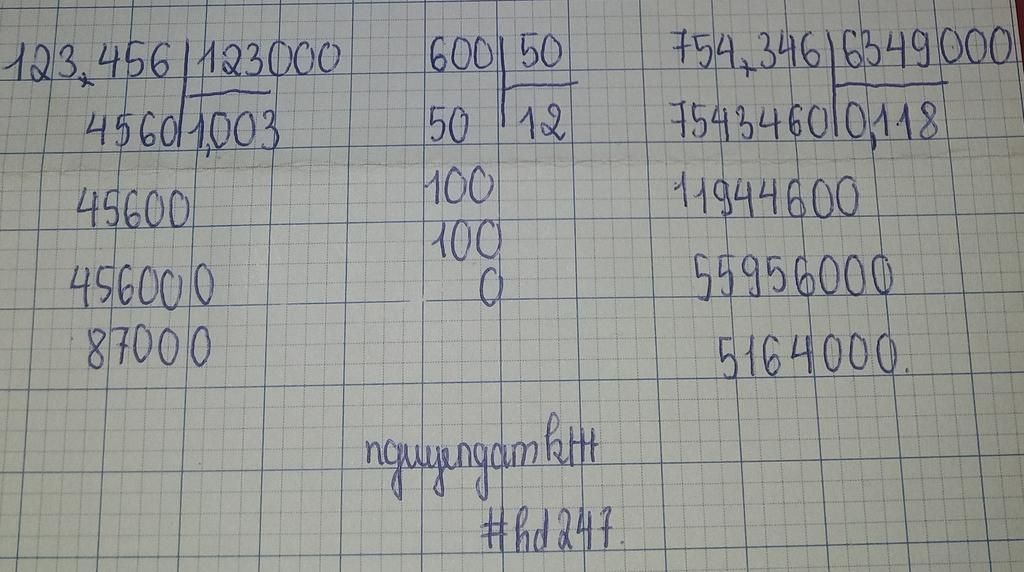 123,456 123000
4560 1,003
45600
456000
87000
600 50
50 12
100
100
0
754,346 6349000
7543460 0,118
11944600
55956000
5164000.
#hd247.